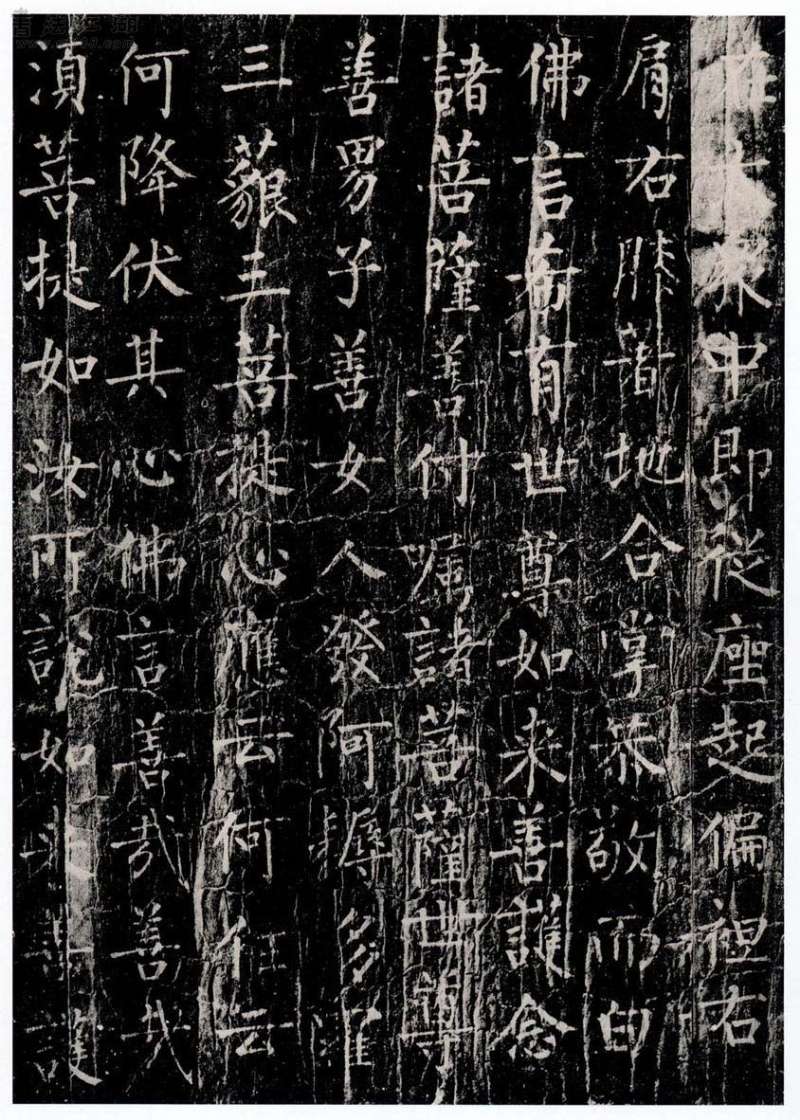 在大衆中即從座起偏袒右
肩右膝著地合掌恭敬而白
佛言希有世尊如来善護念
諸菩薩善付嘱諸菩薩世尊
善男子善女人發阿耨多羅
三藐三菩提心應云何住云
何降伏其心佛言善哉善哉
湏菩提如汝所説如来善護